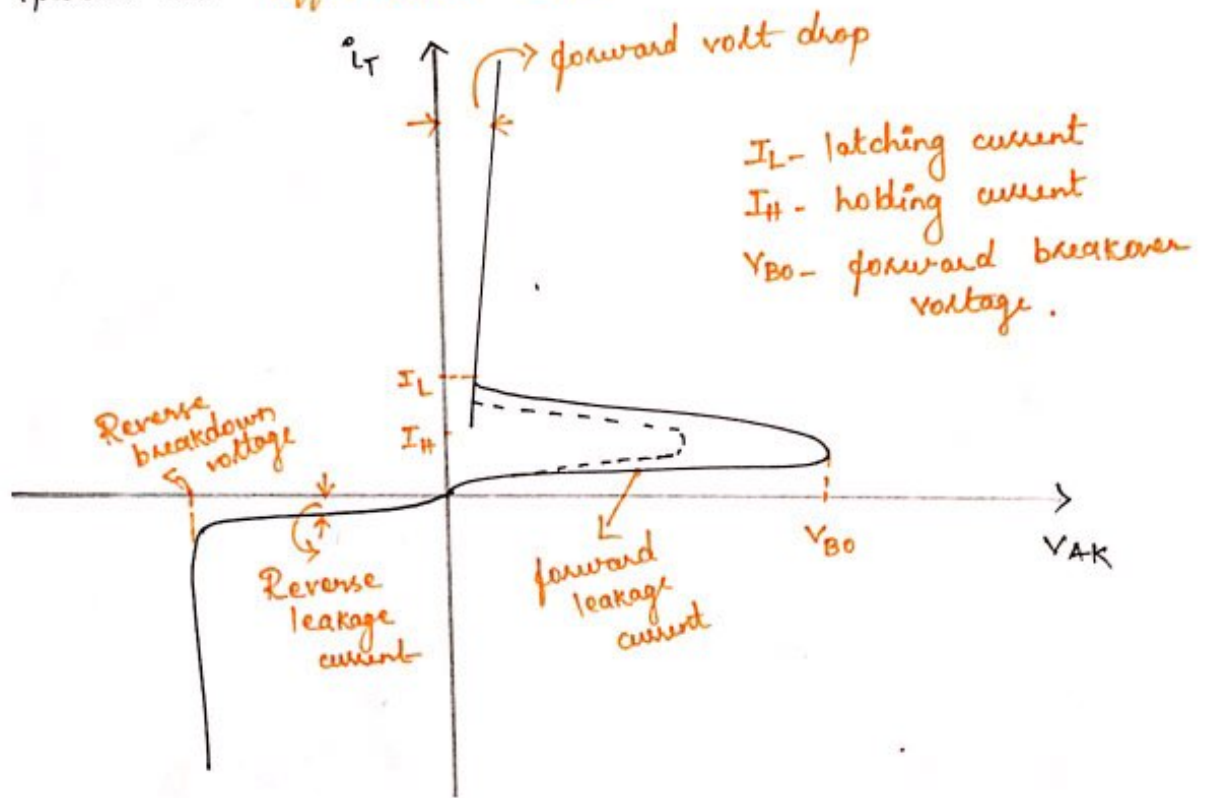 i_T
forward volt drop
I_L - latching current
I_H - holding current
V_BO - forward breakover
voltage.
I_L
I_H
Reverse
breakdown
voltage
V_BO
V_AK
Reverse
leakage
current
forward
leakage
current